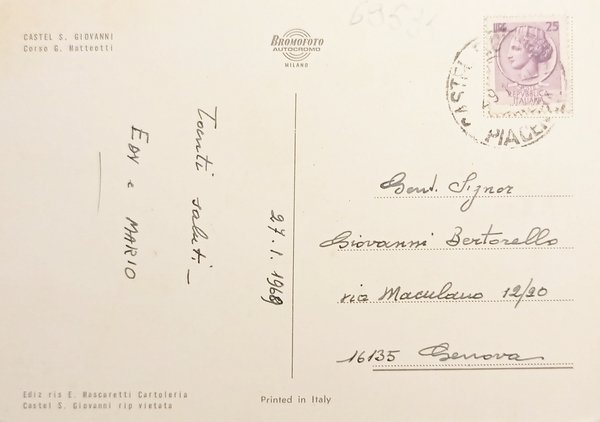 CASTEL S. GIOVANNI
Corso G. Matteotti
BROMOFOTO
AUTOCROMO
MILANO
25
REPVBBLICA
ITALIANA
CASTEL
PIACEN
Tanti saluti
EDV e MARIO
27.1.1969
Gent. Signor
Giovanni Bertorello
via Maculano 12/20
16135 Genova
Ediz ris E. Mascaretti Cartoleria
Castel S. Giovanni rip vietata
Printed in Italy